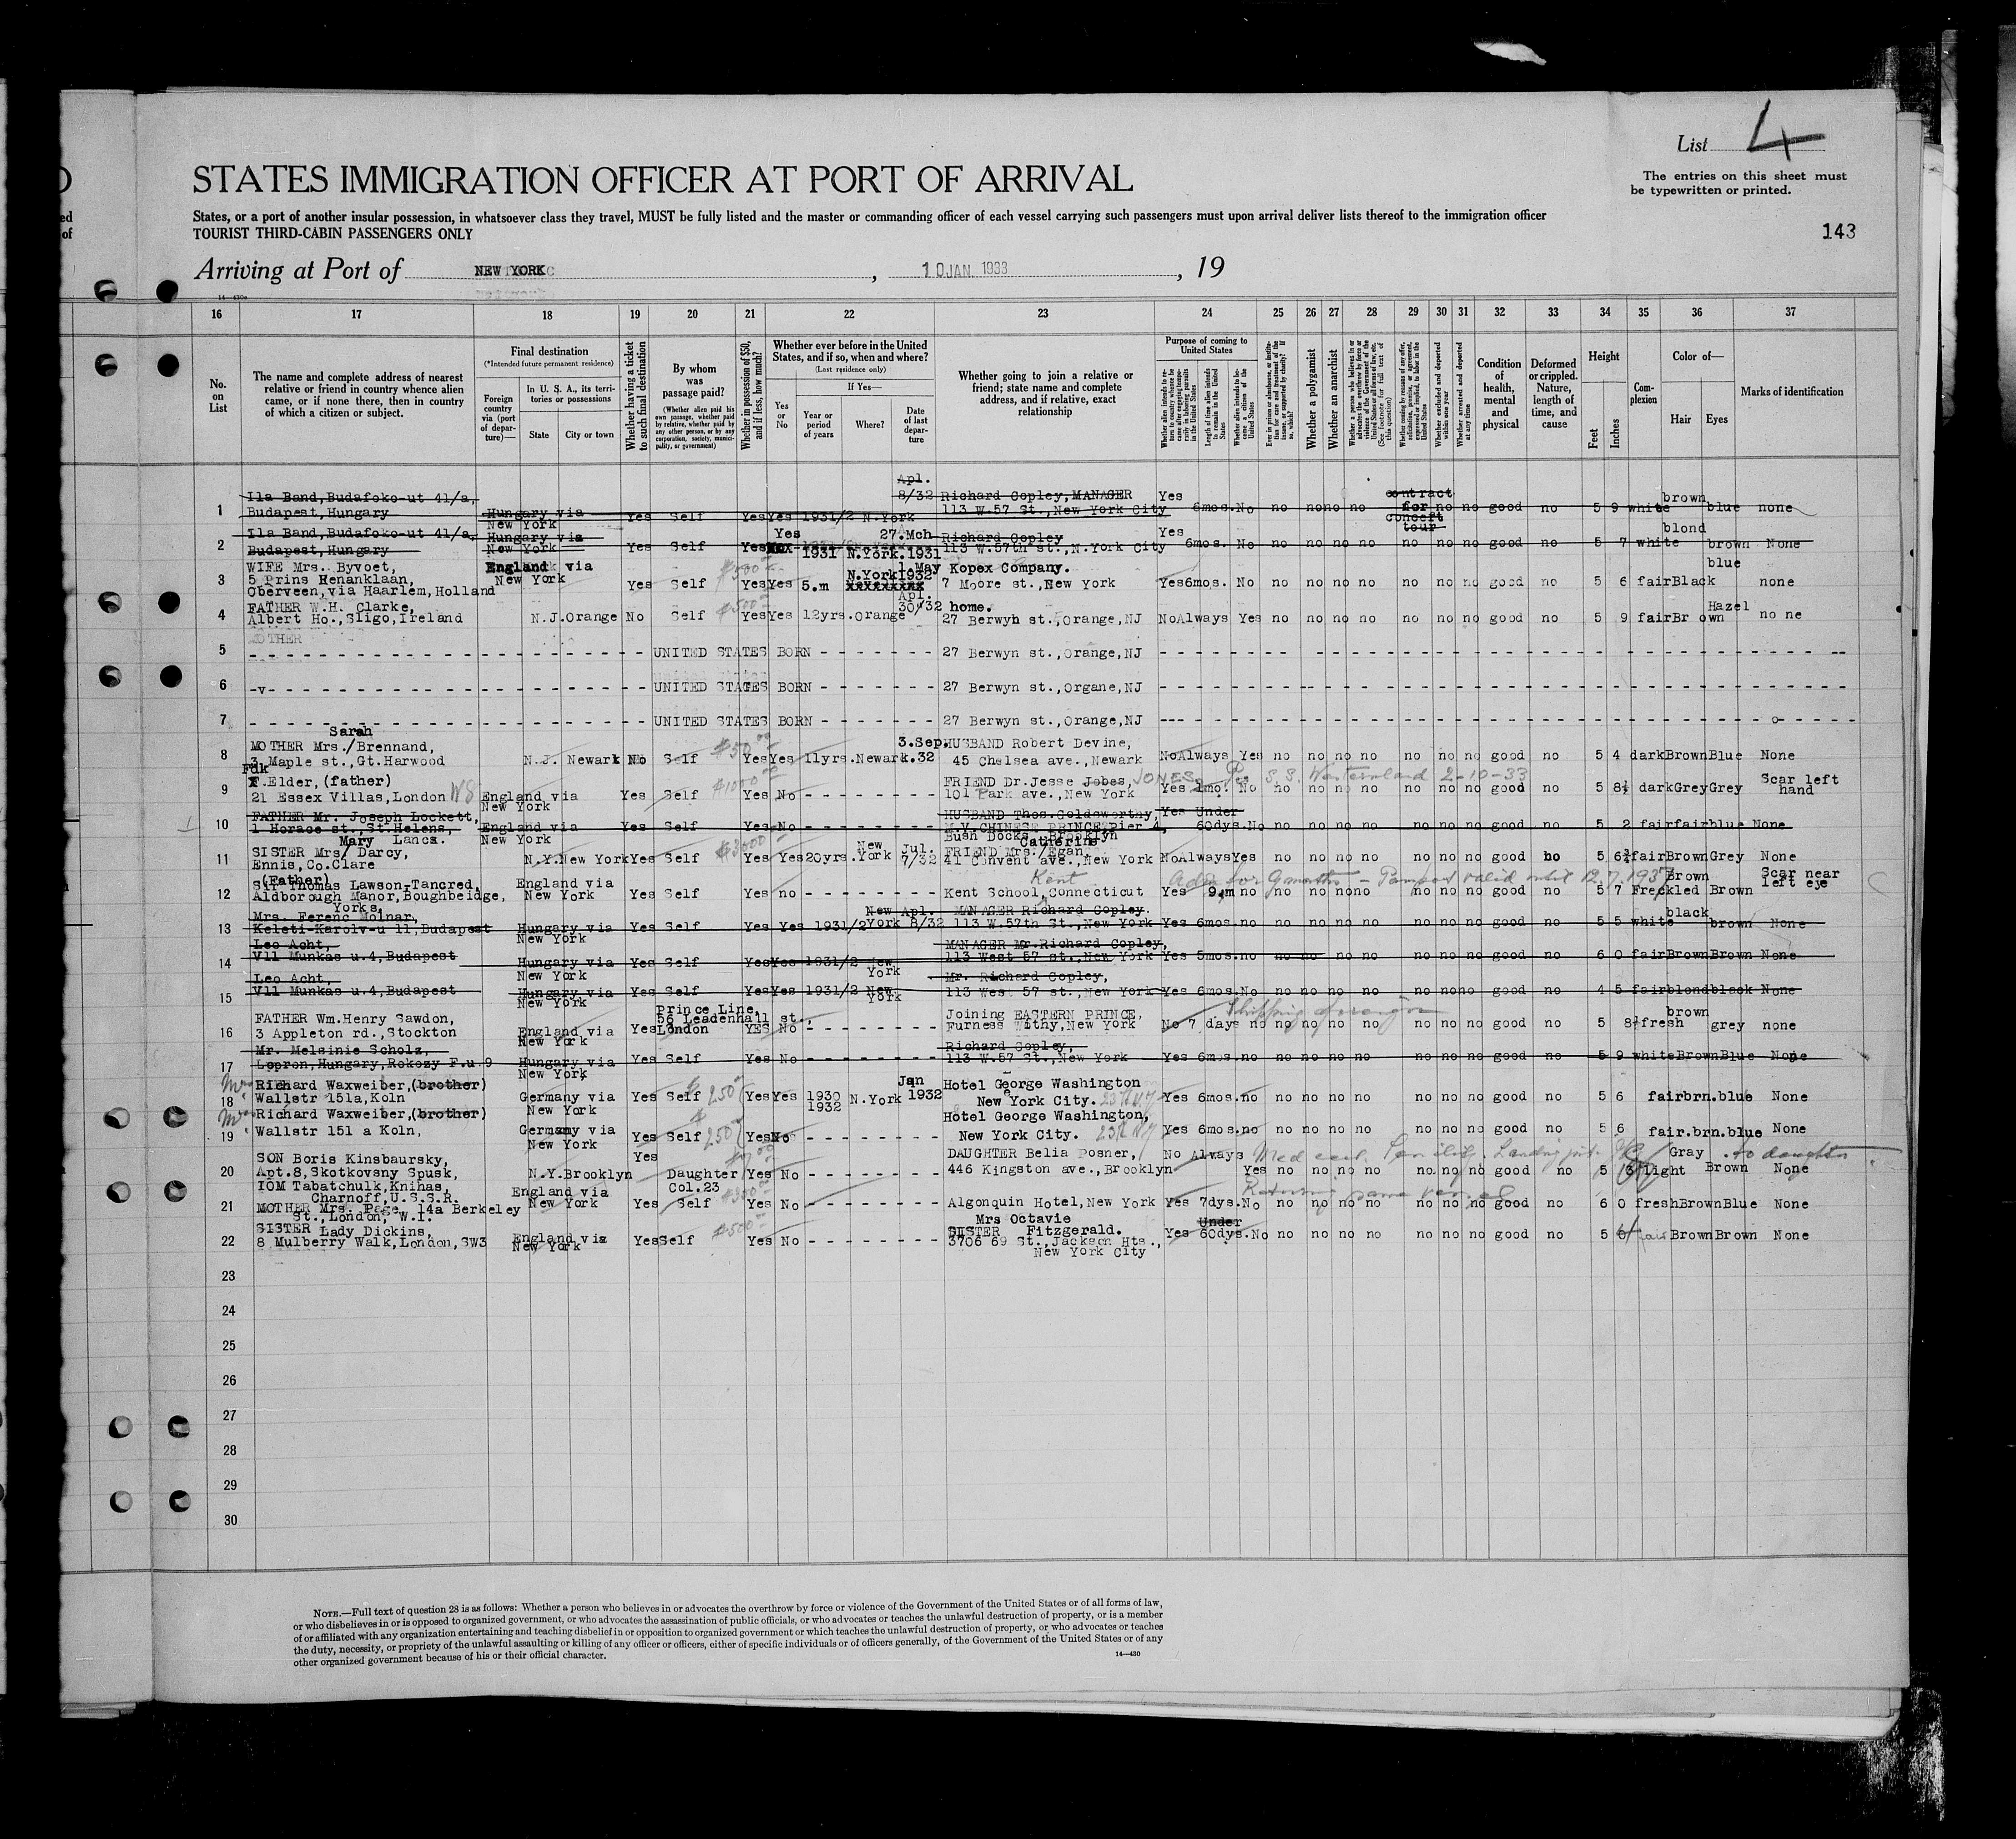 List 4
STATES IMMIGRATION OFFICER AT PORT OF ARRIVAL
The entries on this sheet must
be typewritten or printed.
States, or a port of another insular possession, in whatsoever class they travel, MUST be fully listed and the master or commanding officer of each vessel carrying such passengers must upon arrival deliver lists thereof to the immigration officer
TOURIST THIRD-CABIN PASSENGERS ONLY
143
Arriving at Port of NEW YORK, 10 JAN. 1933, 19
16 17 18 19 20 21 22 23 24 25 26 27 28 29 30 31 32 33 34 35 36 37
No. on List
The name and complete address of nearest relative or friend in country whence alien came, or if none there, then in country of which a citizen or subject.
Final destination
(*Intended future permanent residence)
Foreign country via (port of departure)—
In U. S. A., its territories or possessions
State
City or town
Whether having a ticket to such final destination
By whom was passage paid?
(Whether alien paid his own passage, whether paid by relative, whether paid by any other person, or by any corporation, society, municipality, or government)
Whether in possession of $50, and if less, how much?
Whether ever before in the United States, and if so, when and where?
(Last residence only)
Yes or No
If Yes—
Year or period of years
Where?
Date of last departure
Whether going to join a relative or friend; state name and complete address, and if relative, exact relationship
Purpose of coming to United States
Whether a polygamist
Whether an anarchist
Condition of health, mental and physical
Deformed or crippled. Nature, length of time, and cause
Height
Feet
Inches
Complexion
Color of—
Hair
Eyes
Marks of identification
1 Ila Band, Budafoko-ut 41/a, Budapest, Hungary Hungary via New York Yes Self Yes Yes 1931/2 N.York Apl. 8/32 Richard Copley, MANAGER 113 W.57 St., New York City Yes 6mos. No no no no no contract for concert tour no no good no 5 9 white brown blue none
2 Ila Band, Budafoko-ut 41/a, Budapest, Hungary Hungary via New York Yes Self Yes Yes 1931 N.York. 27.Mch 1931 Richard Copley 113 W.57th st., N.York City Yes 6mos. No no no no no no no no good no 5 7 white blond brown None
3 WIFE Mrs. Byvoet, 5 Prins Henanklaan, Oberveen, via Haarlem, Holland England via New York Yes Self $500 Yes Yes 5.m N.York 1.May 1932 Kopex Company. 7 Moore st., New York Yes 6mos. No no no no no no no no good no 5 6 fair Black blue none
4 FATHER W.H. Clarke, Albert Ho., Sligo, Ireland N.J. Orange No Self $500 Yes Yes 12yrs. Orange Apl. 30/32 home. 27 Berwyn st., Orange, NJ No Always Yes no no no no no no no good no 5 9 fair Brown Hazel no ne
MOTHER
5 UNITED STATES BORN 27 Berwyn st., Orange, NJ
6 UNITED STATES BORN 27 Berwyn st., Organe, NJ
7 UNITED STATES BORN 27 Berwyn st., Orange, NJ
8 MOTHER Mrs./ Sarah Brennand, 3 Maple st., Gt. Harwood N.J. Newark No Self $50 Yes Yes 11yrs. Newark. 3.Sep. 32 HUSBAND Robert Devine, 45 Chelsea ave., Newark No Always Yes no no no no no no no good no 5 4 dark Brown Blue None
9 Fdk F. Elder, (father) 21 Essex Villas, London W8 England via New York Yes Self $1000 Yes No FRIEND Dr. Jesse Jobes, JONES 101 Park ave., New York Yes 1mo. No S.S. Westernland 2-10-33 no no no no no no no good no 5 8½ dark Grey Grey Scar left hand
10 FATHER Mr. Joseph Lockett, 1 Horace st., St. Helens, Lancs. England via New York Yes Self Yes No HUSBAND Thos. Goldsworthy, M.V. CHINESE PRINCE Pier 4, Bush Docks, Brooklyn Yes Under 60dys. No no no no no no no no good no 5 2 fair fair blue None
11 SISTER Mrs/ Mary Darcy, Ennis, Co. Clare N.Y. New York Yes Self $3000 Yes Yes 20yrs. New York Jul. 7/32 FRIEND Mrs./ Catherine Egan, 41 Convent ave., New York No Always Yes no no no no no no no good no 5 6¾ fair Brown Grey None
12 (Father) Sir Thomas Lawson-Tancred, Aldborough Manor, Boughbeidge, Yorks. England via New York Yes Self Yes no Kent Kent School, Connecticut Yes 9.m no Adm for 9 months - Passport valid until 12.7.1937 no no no no no no no good no 5 7 Freckled Brown Brown Scar near left eye
13 Mrs. Ferenc Molnar, Keleti-Karolv-u 11, Budapest Hungary via New York Yes Self Yes Yes 1931/2 New York Apl. 8/32 MANAGER Richard Copley. 113 W.57th St., New York Yes 6mos. no no no no no no no no good no 5 5 white black brown None
14 Leo Acht, Vll Munkas u.4, Budapest Hungary via New York Yes Self Yes Yes 1931/2 New York MANAGER Mr. Richard Copley, 113 West 57 st., New York Yes 5mos. no no no no no no no good no 6 0 fair Brown Brown None
15 Leo Acht, Vll Munkas u.4, Budapest Hungary via New York Yes Self Yes Yes 1931/2 New York Mr. Richard Copley, 113 West 57 st., New York Yes 6mos. No no no no no no no no good no 4 5 fair blond black None
16 FATHER Wm. Henry Sawdon, 3 Appleton rd., Stockton England via New York Yes Prince Line, 56 Leadenhall st., London YES No Joining EASTERN PRINCE, Furness Withy, New York No 7 days no no no no no no no no good no 5 8½ fresh brown grey none
17 Mr. Melsinie Scholz, Lopron, Hungary, Rokozy F.u.9 Hungary via New York Yes Self Yes No Richard Copley, 113 W.57 St., New York Yes 6mos. no no no no no no no no good no 5 9 white Brown Blue None
18 Mrs Richard Waxweiber, (brother) Wallstr 151a, Koln Germany via New York Yes Self $250 Yes Yes 1930 1932 N.York Jan 1932 Hotel George Washington New York City. Yes 6mos. no no no no no no no no good no 5 6 fair brn. blue None
19 Mrs Richard Waxweiber, (brother) Wallstr 151 a Koln, Germany via New York Yes Self $250 Yes No Hotel George Washington, New York City. Yes 6mos. no no no no no no no no good no 5 6 fair. brn. blue None
20 SON Boris Kinsbaursky, Apt.8, Skotkovsny Spusk, IOM Tabatchulk, Knihas, Charnoff, U.S.S.R. N.Y. Brooklyn Yes Daughter Col.23 Yes No DAUGHTER Belia Posner, 446 Kingston ave., Brooklyn No Always Yes Med cert. Senility. to daughter no no no no no no no good no 5 light Gray Brown None
21 MOTHER Mrs. Page, 14a Berkeley St., London, W.1. England via New York Yes Self $300 Yes No Algonquin Hotel, New York Yes 7dys. No Returning same vessel no no no no no no no good no 6 0 fresh Brown Blue None
22 SISTER Lady Dickins, 8 Mulberry Walk, London, SW3 England via New York Yes Self $500 Yes No SISTER Mrs Octavie Fitzgerald. 3706 69 St., Jackson Hts., New York City Yes Under 60dys. No no no no no no no no good no 5 6 fair Brown Brown None
23
24
25
26
27
28
29
30
NOTE.—Full text of question 28 is as follows: Whether a person who believes in or advocates the overthrow by force or violence of the Government of the United States or of all forms of law,
or who disbelieves in or is opposed to organized government, or who advocates the assassination of public officials, or who advocates or teaches the unlawful destruction of property, or is a member
of or affiliated with any organization entertaining and teaching disbelief in or opposition to organized government or which teaches the unlawful destruction of property, or who advocates or teaches
the duty, necessity, or propriety of the unlawful assaulting or killing of any officer or officers, either of specific individuals or of officers generally, of the Government of the United States or of any
other organized government because of his or their official character.
14—430